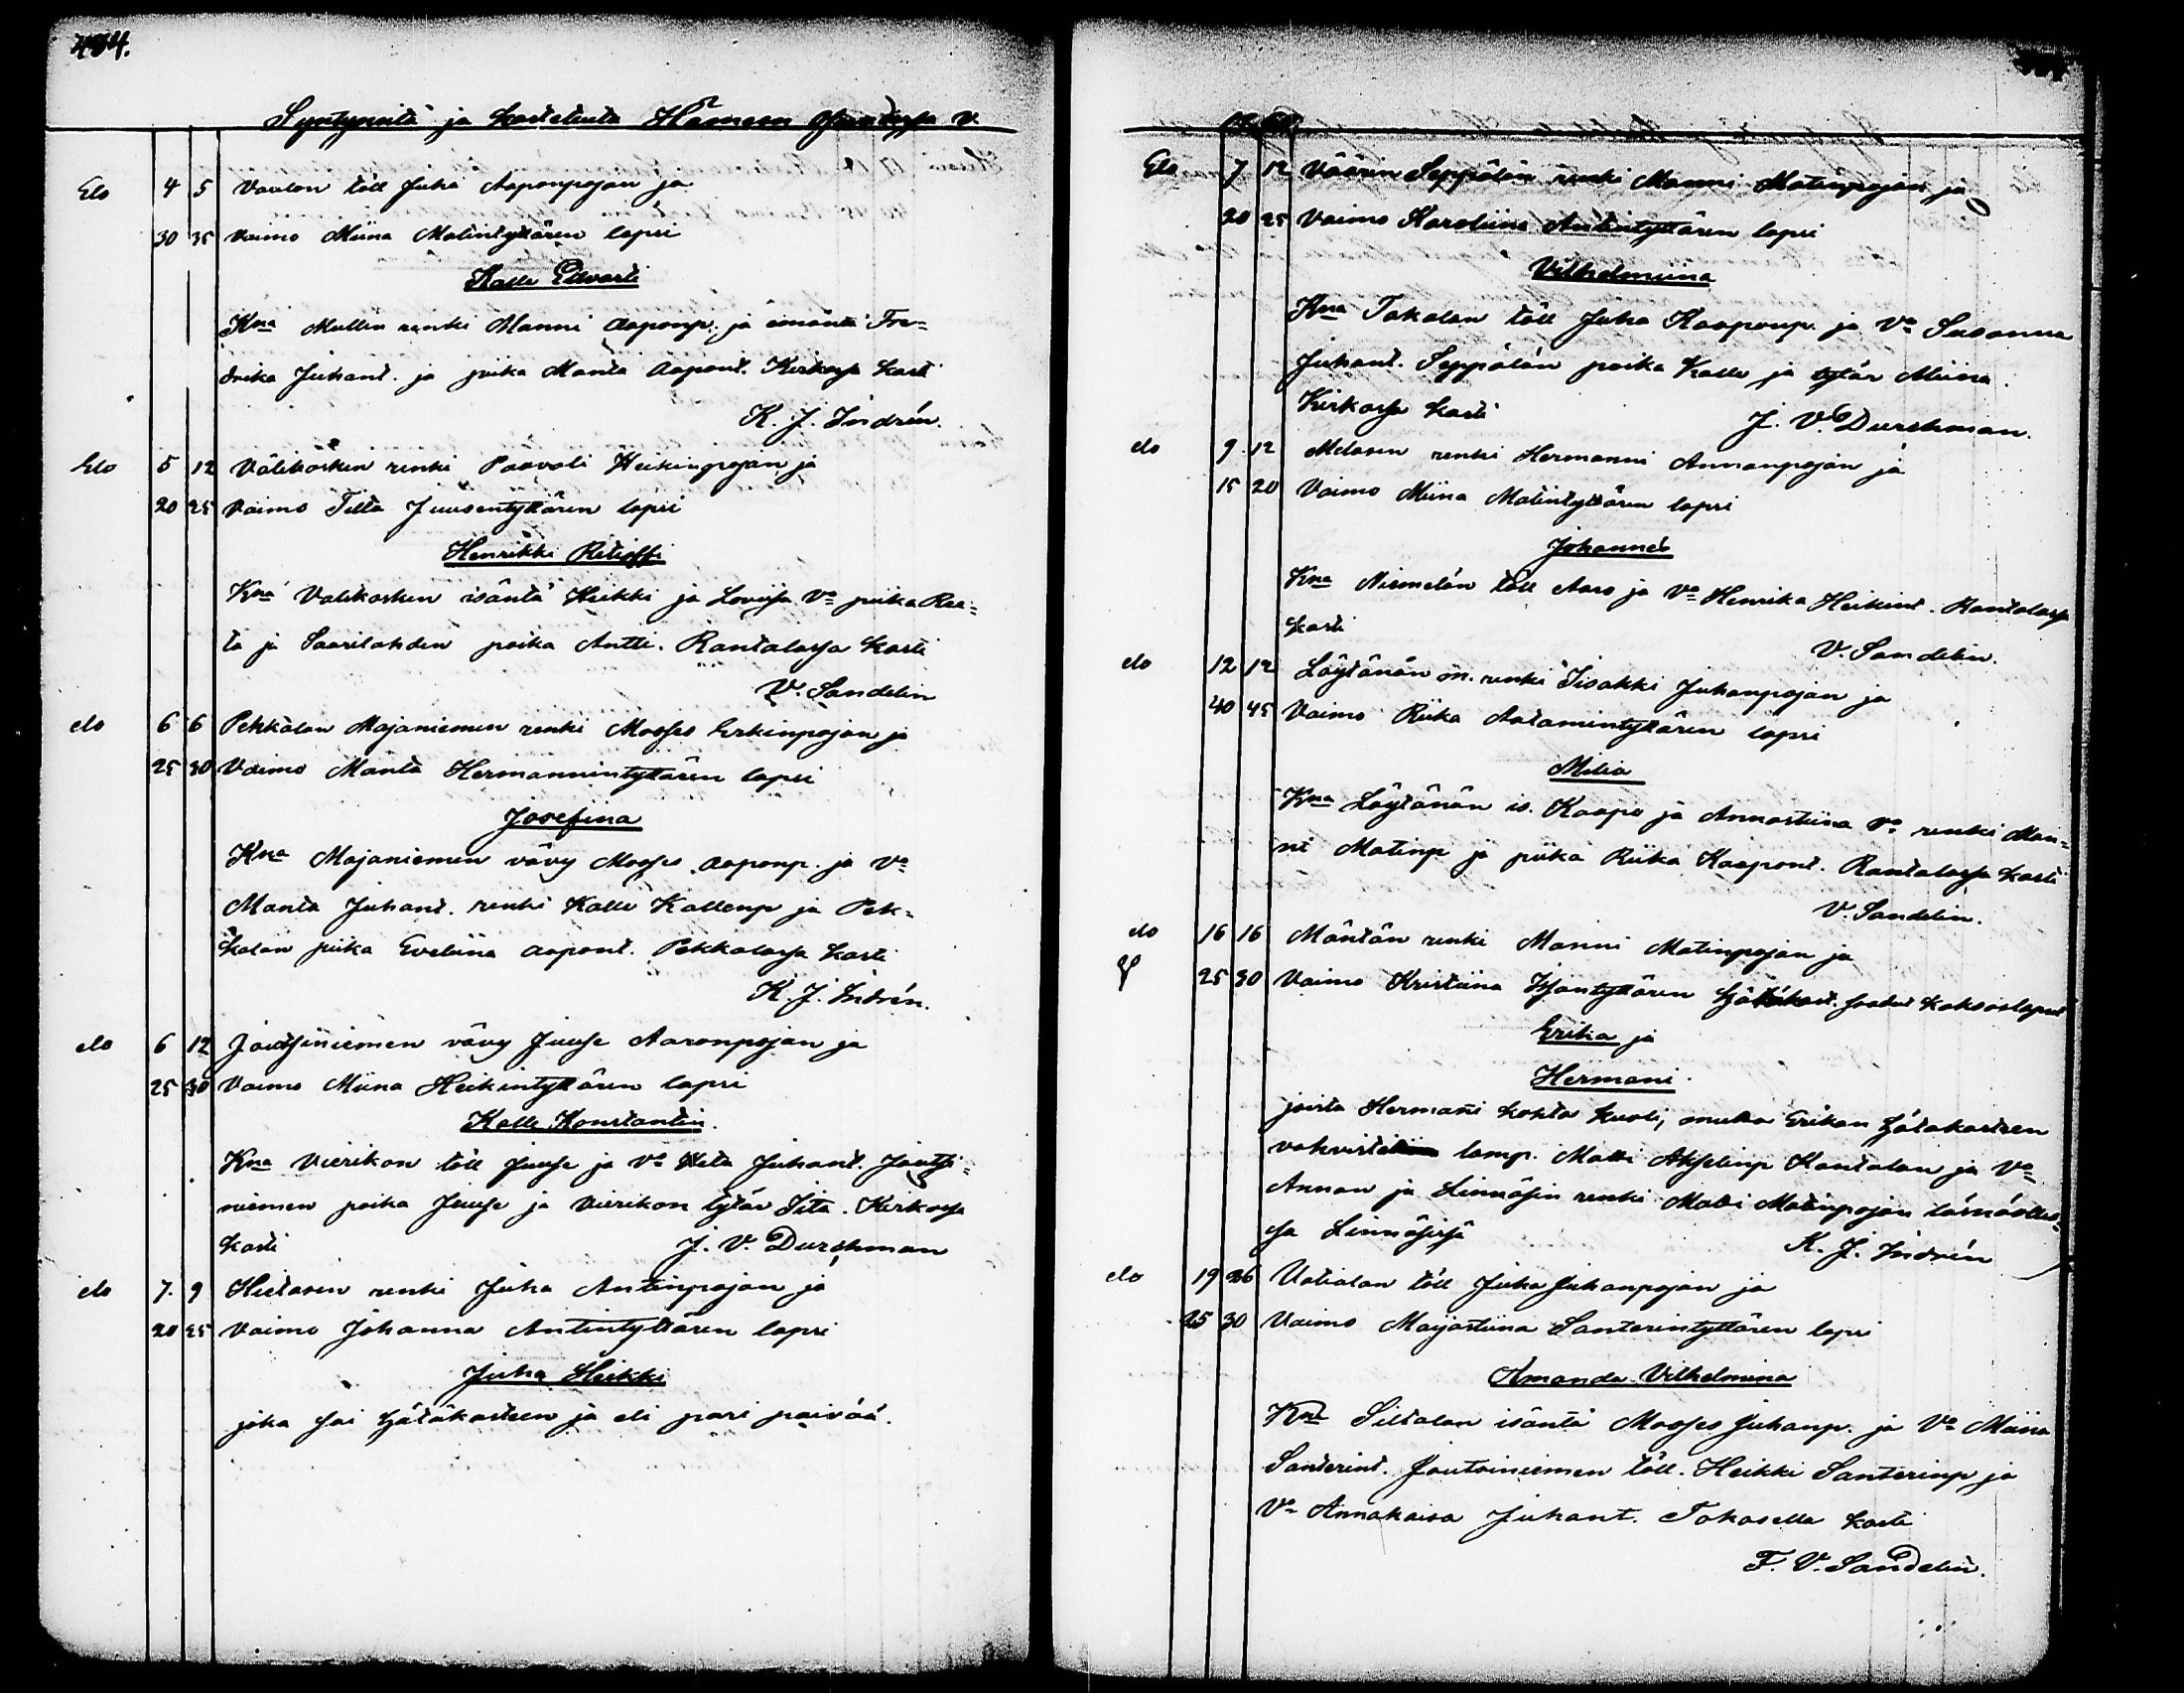 Syntyneitä ja kastetuita Hämeen V.
Elo 4 5 Vaulon töll Juha Aaponpojan ja
30 35 Vaimo Miina Matintyttären lapsi
Kalle Edvarti
Kna Mullin renki Manni Aaponp. ja emäntä Fre=
drika Juhant. ja piika Manta Aapont. Kirkossa kasti
K. J. Indrén.
Elo 5 12 Välikosken renki Paavali Heikinpojan ja
20 25 Vaimo Tilta Juusentyttären lapsi
Henrikki
Kna Välikosken isäntä Heikki ja Loviisa Va piika Ree=
ta ja Saarilahden poika Antti. Rantalassa kasti
V. Sandelin
elo 6 6 Pekkalan Majaniemen renki Mosses Erkinpojan ja
25 30 Vaimo Manta Hermannintyttären lapsi
Josefina
Kna Majaniemen vävy Mosses Aaponp. ja Va
Manta Juhant. renki Kalle Kallenp ja Pek=
kalan piika Eveliina Aapont. Pekkalassa kasti
K. J. Indrén.
elo 6 12 Joutsiniemen vävy Juuse Aaronpojan ja
25 30 Vaimo Miina Heikintyttären lapsi
Kalle Konstantin.
Kna Vierikon töll Juuse ja Va Juhant. Joutsi=
niemen poika Juuse ja Vierikon tytär Iita. Kirkossa
kasti J. V. Durchman
elo 7. 9 Hietasen renki Juha Antinpojan ja
20 25 Vaimo Johanna Antintyttären lapsi
Juha Heikki
joka sai hätäkasteen ja eli pari päivää.
Elo 7 12 Väärin Seppälän renki Manni Matinpojan ja
20 25 Vaimo Karoliina Antintyttären lapsi
Vilhelmiina
Kna Takalan töll Juha Kaaponp. ja Va Susanna
Juhant. Seppälän poika Kalle ja tytär Miina.
Kirkossa kasti J. V. Durchman.
elo 9. 12 Melasen renki Hermanni Annanpojan ja
15 20 Vaimo Miina Matintyttären lapsi
Johannes
Kna Niemelän töll Aaro ja Va Henrika Heikint. Rantalassa
kasti
V. Sandelin.
elo 12 12 Löytänän m. renki Iisakki Juhanpojan ja
40 45 Vaimo Riika Aatamintyttären lapsi
Milia
Kna Löytänän is. Kaapo ja Annastiina Va renki Man=
ni Matinp ja piika Riika Kaapont. Rantalassa kasti
V. Sandelin.
elo 16 16 Mäntän renki Manni Matinpojan ja
25 30 Vaimo Kristiina hätäkast. saadut kaksoslapset
Erika ja
Hermani.
joista Hermani kohta kuoli, mutta Erikan hätäkasteen
lamp. Matti Akselinp Kantalan ja Va
Annan ja renki Matti Matinpojan läsnäolles=
sa K. J. Indrén
elo 19 26 Vatialan töll Juha Juhanpojan ja
25 30 Vaimo Maijastiina Santerintyttären lapsi
Amanda Vilhelmina
Kna Siltalan isäntä Mosses Juhanp. ja Va Miina
Santerint. Joutsiniemen töll. Heikki Santerinp ja
Va Annakaisa Juhant. Takasella kasti
F. V. Sandelin.